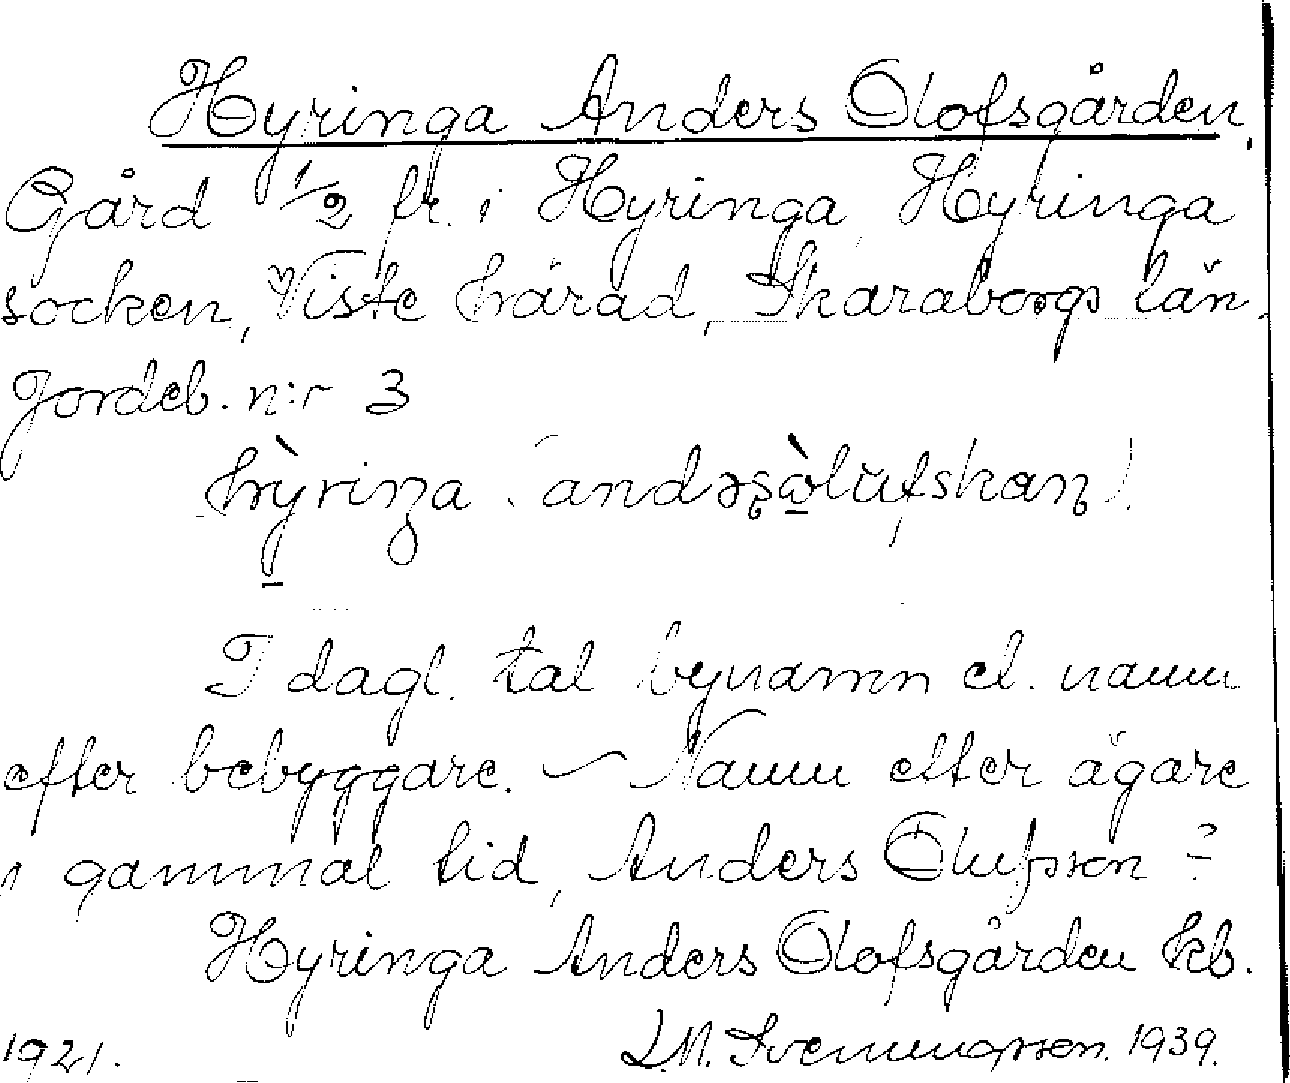 Hyringa Anders Olofsgården.
Gård 1/2 fr. i Hyringa, Hyringa
socken, Viste härad, Skaraborgs län.
Jordeb. n:r 3
hỳriŋa (andəʂὼlŭfskaɳ)
I dagl. tal bynamn el. namn
efter bebyggare. – Namn efter ägare
i gammal tid, Anders Olufsson?
Hyringa Anders Olofsgården kb.
1921. L.M. Svenungsson. 1939.